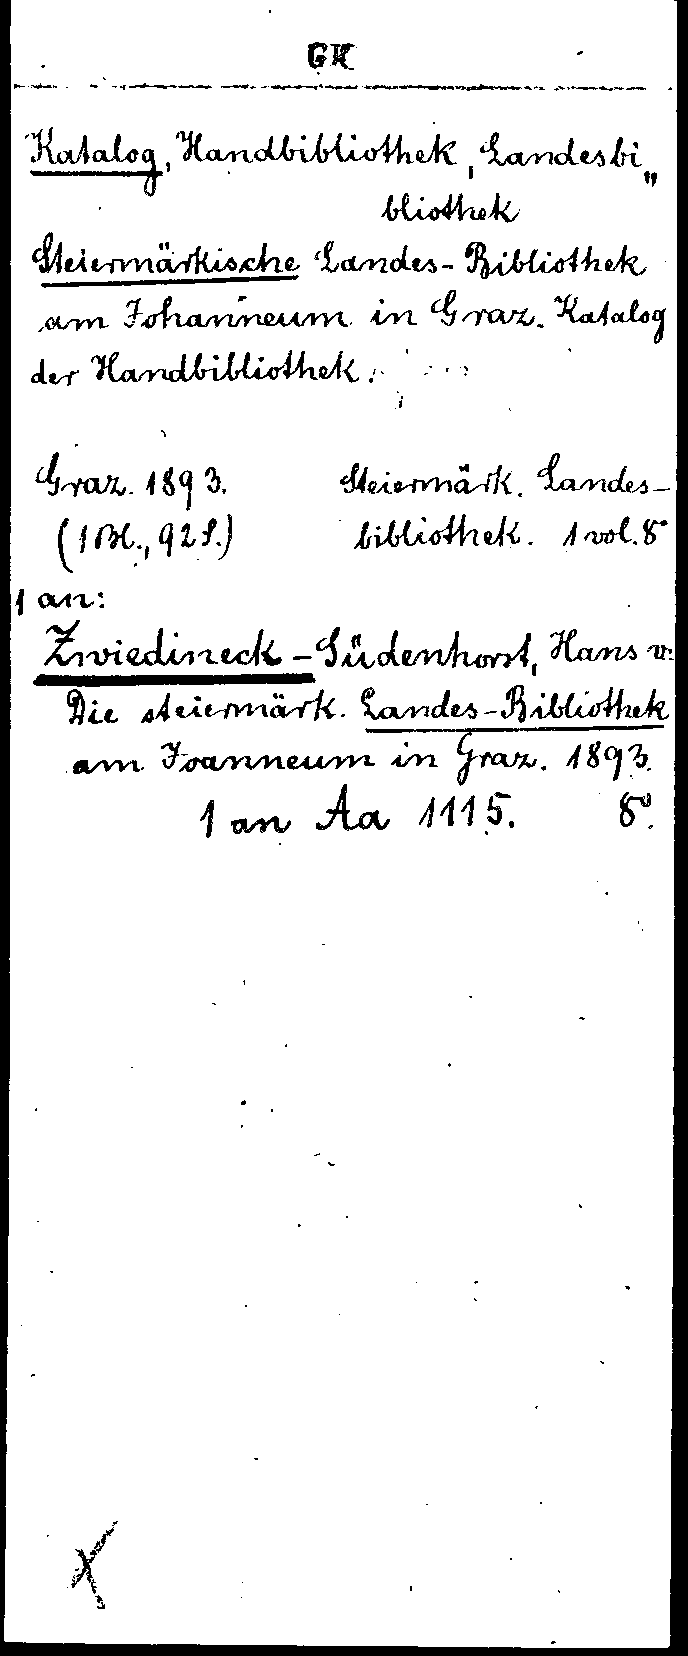 GK
Katalog, Handbibliothek, Landesbi„
bliothek
Steiermärkische Landes-Bibliothek
am Johanneum in Graz. Katalog
der Handbibliothek.
Graz. 1893. Steiermärk. Landes-
(1 Bl., 92 S.) bibliothek. 1 vol. 8°
1 an:
Zwiedineck-Südenhorst, Hans v:
Die steiermärk. Landes-Bibliothek
am Joanneum in Graz. 1893.
1 an Aa 1115. 8°.
X